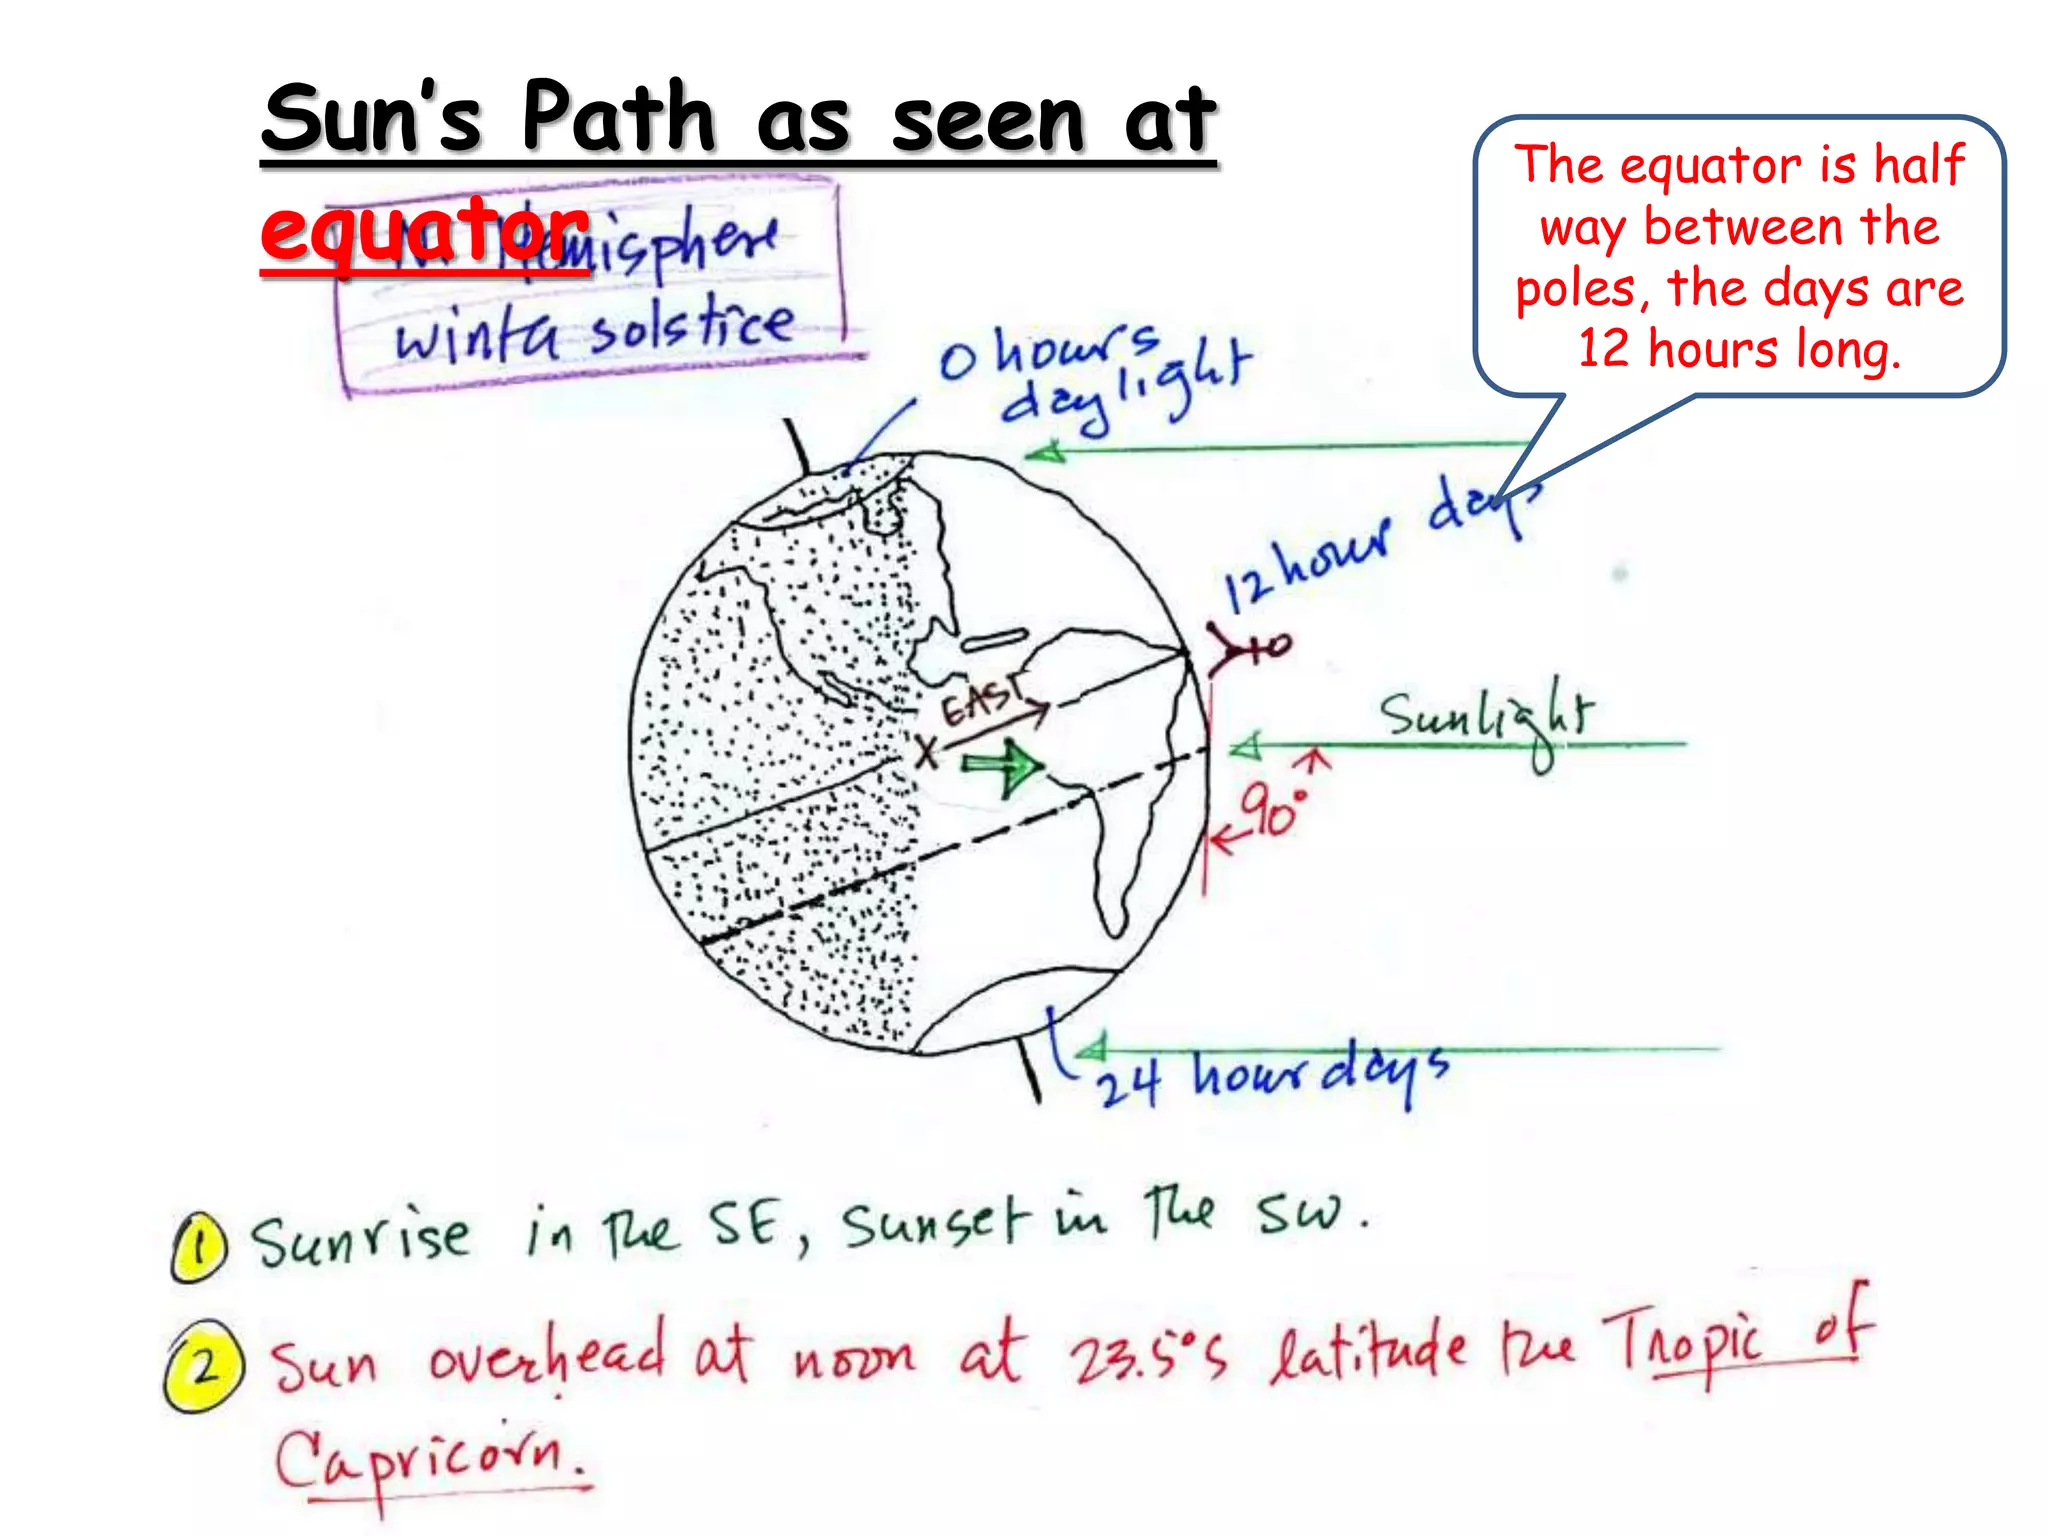 Sun's Path as seen at
equator
N. Hemisphere
winter solstice
The equator is half
way between the
poles, the days are
12 hours long.
0 hours
daylight
12 hour days
EAST
X
Sunlight
90°
24 hour days
1 Sunrise in the SE, sunset in the SW.
2 Sun overhead at noon at 23.5°S latitude the Tropic of
Capricorn.